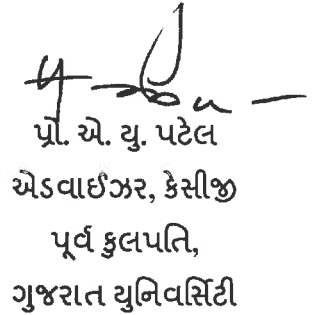 પ્રો. એ. યુ. પટેલ
એડવાઈઝર, કેસીજી
પૂર્વ કુલપતિ,
ગુજરાત યુનિવર્સિટી